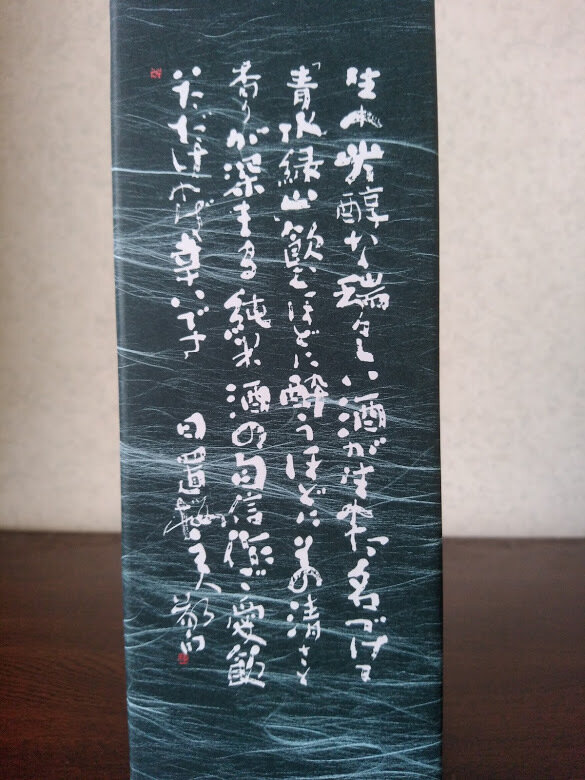 芳醇な瑞々しい酒が出来た名づけて
「青水緑山」飲むほどに酔うほどに清さと
香りが深まる 純米酒の自信作ご愛飲
いただければ幸いです 日置桜 敬白